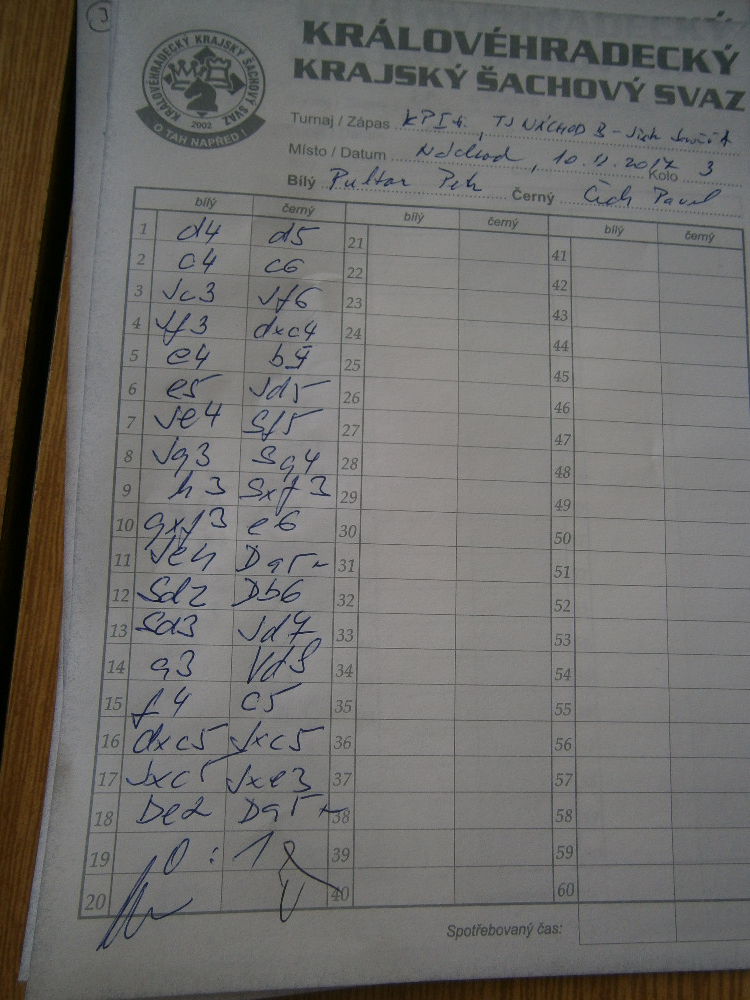 KRÁLOVÉHRADECKÝ
KRAJSKÝ ŠACHOVÝ SVAZ
KRÁLOVÉHRADECKÝ KRAJSKÝ ŠACHOVÝ SVAZ
2002
O TAH NAPŘED!
Turnaj / Zápas KPI tř. TJ NÁCHOD B -
Místo / Datum Náchod, 10.12.2017 Kolo 3
Bílý Pultar Petr Černý Čich Pavel
bílý černý bílý černý bílý černý
1 d4 d5 21 41
2 c4 c6 22 42
3 Jc3 Jf6 23 43
4 Jf3 dxc4 24 44
5 e4 b5 25 45
6 e5 Jd5 26 46
7 Je4 Sf5 27 47
8 Jg3 Sg4 28 48
9 h3 Sxf3 29 49
10 gxf3 e6 30 50
11 Je4 Da5+ 31 51
12 Sd2 Db6 32 52
13 Sd3 Jd7 33 53
14 a3 Vd8 34 54
15 f4 c5 35 55
16 dxc5 Jxc5 36 56
17 Jxc5 Jxe3 37 57
18 De2 Da5+ 38 58
19 0 : 1 39 59
20 40 60
Spotřebovaný čas: